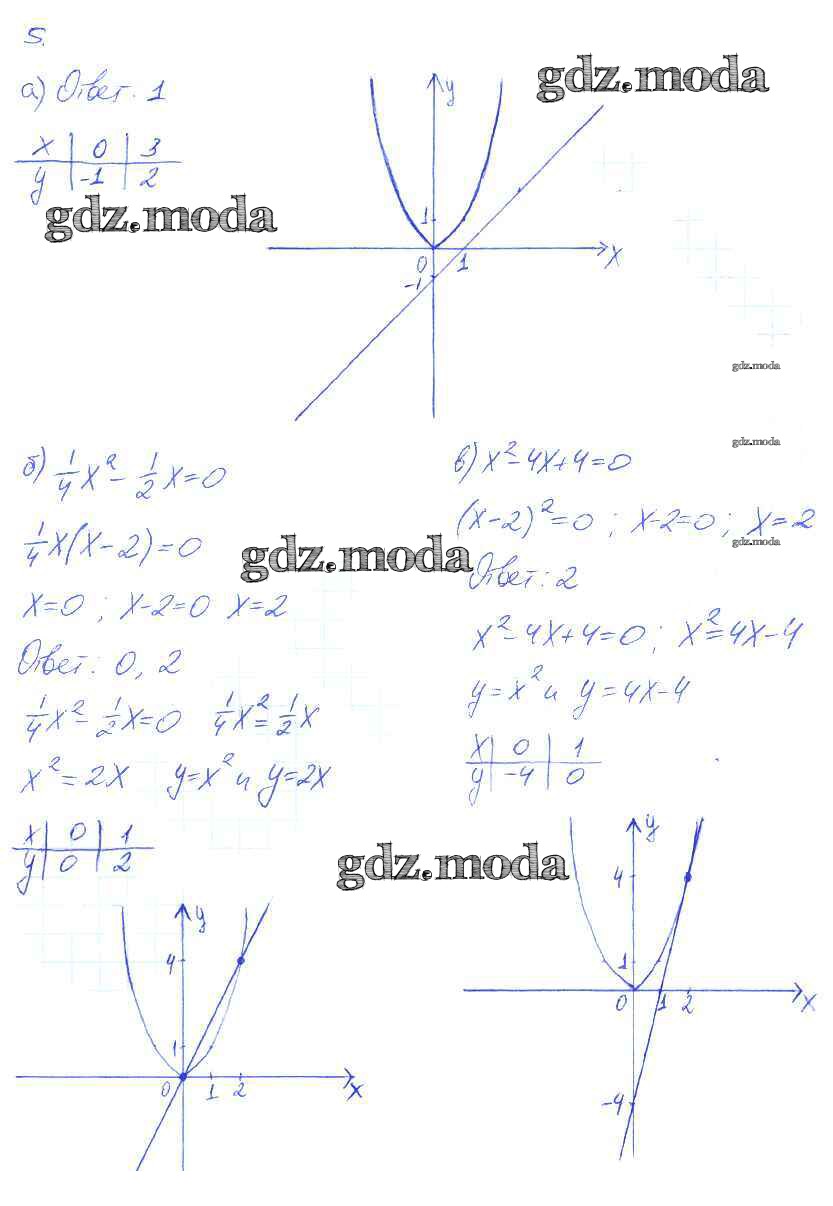 5.
а) Ответ: 1
x 0 3
y -1 2
gdz.moda
gdz.moda
y
1
0 1 x
-1
gdz.moda
gdz.moda
б) 1/4 x² - 1/2 x = 0
1/4 x(x-2) = 0
x=0 ; x-2=0 x=2
Ответ: 0, 2
1/4 x² - 1/2 x = 0 1/4 x² = 1/2 x
x² = 2x y=x² и y=2x
x 0 1
y 0 2
y
4
1
0 1 2 x
gdz.moda
в) x²-4x+4=0
(x-2)²=0 ; x-2=0 ; x=2
gdz.moda
Ответ: 2
x²-4x+4=0 ; x²=4x-4
y=x² и y=4x-4
x 0 1
y -4 0
gdz.moda
y
4
1
0 1 2 x
-4